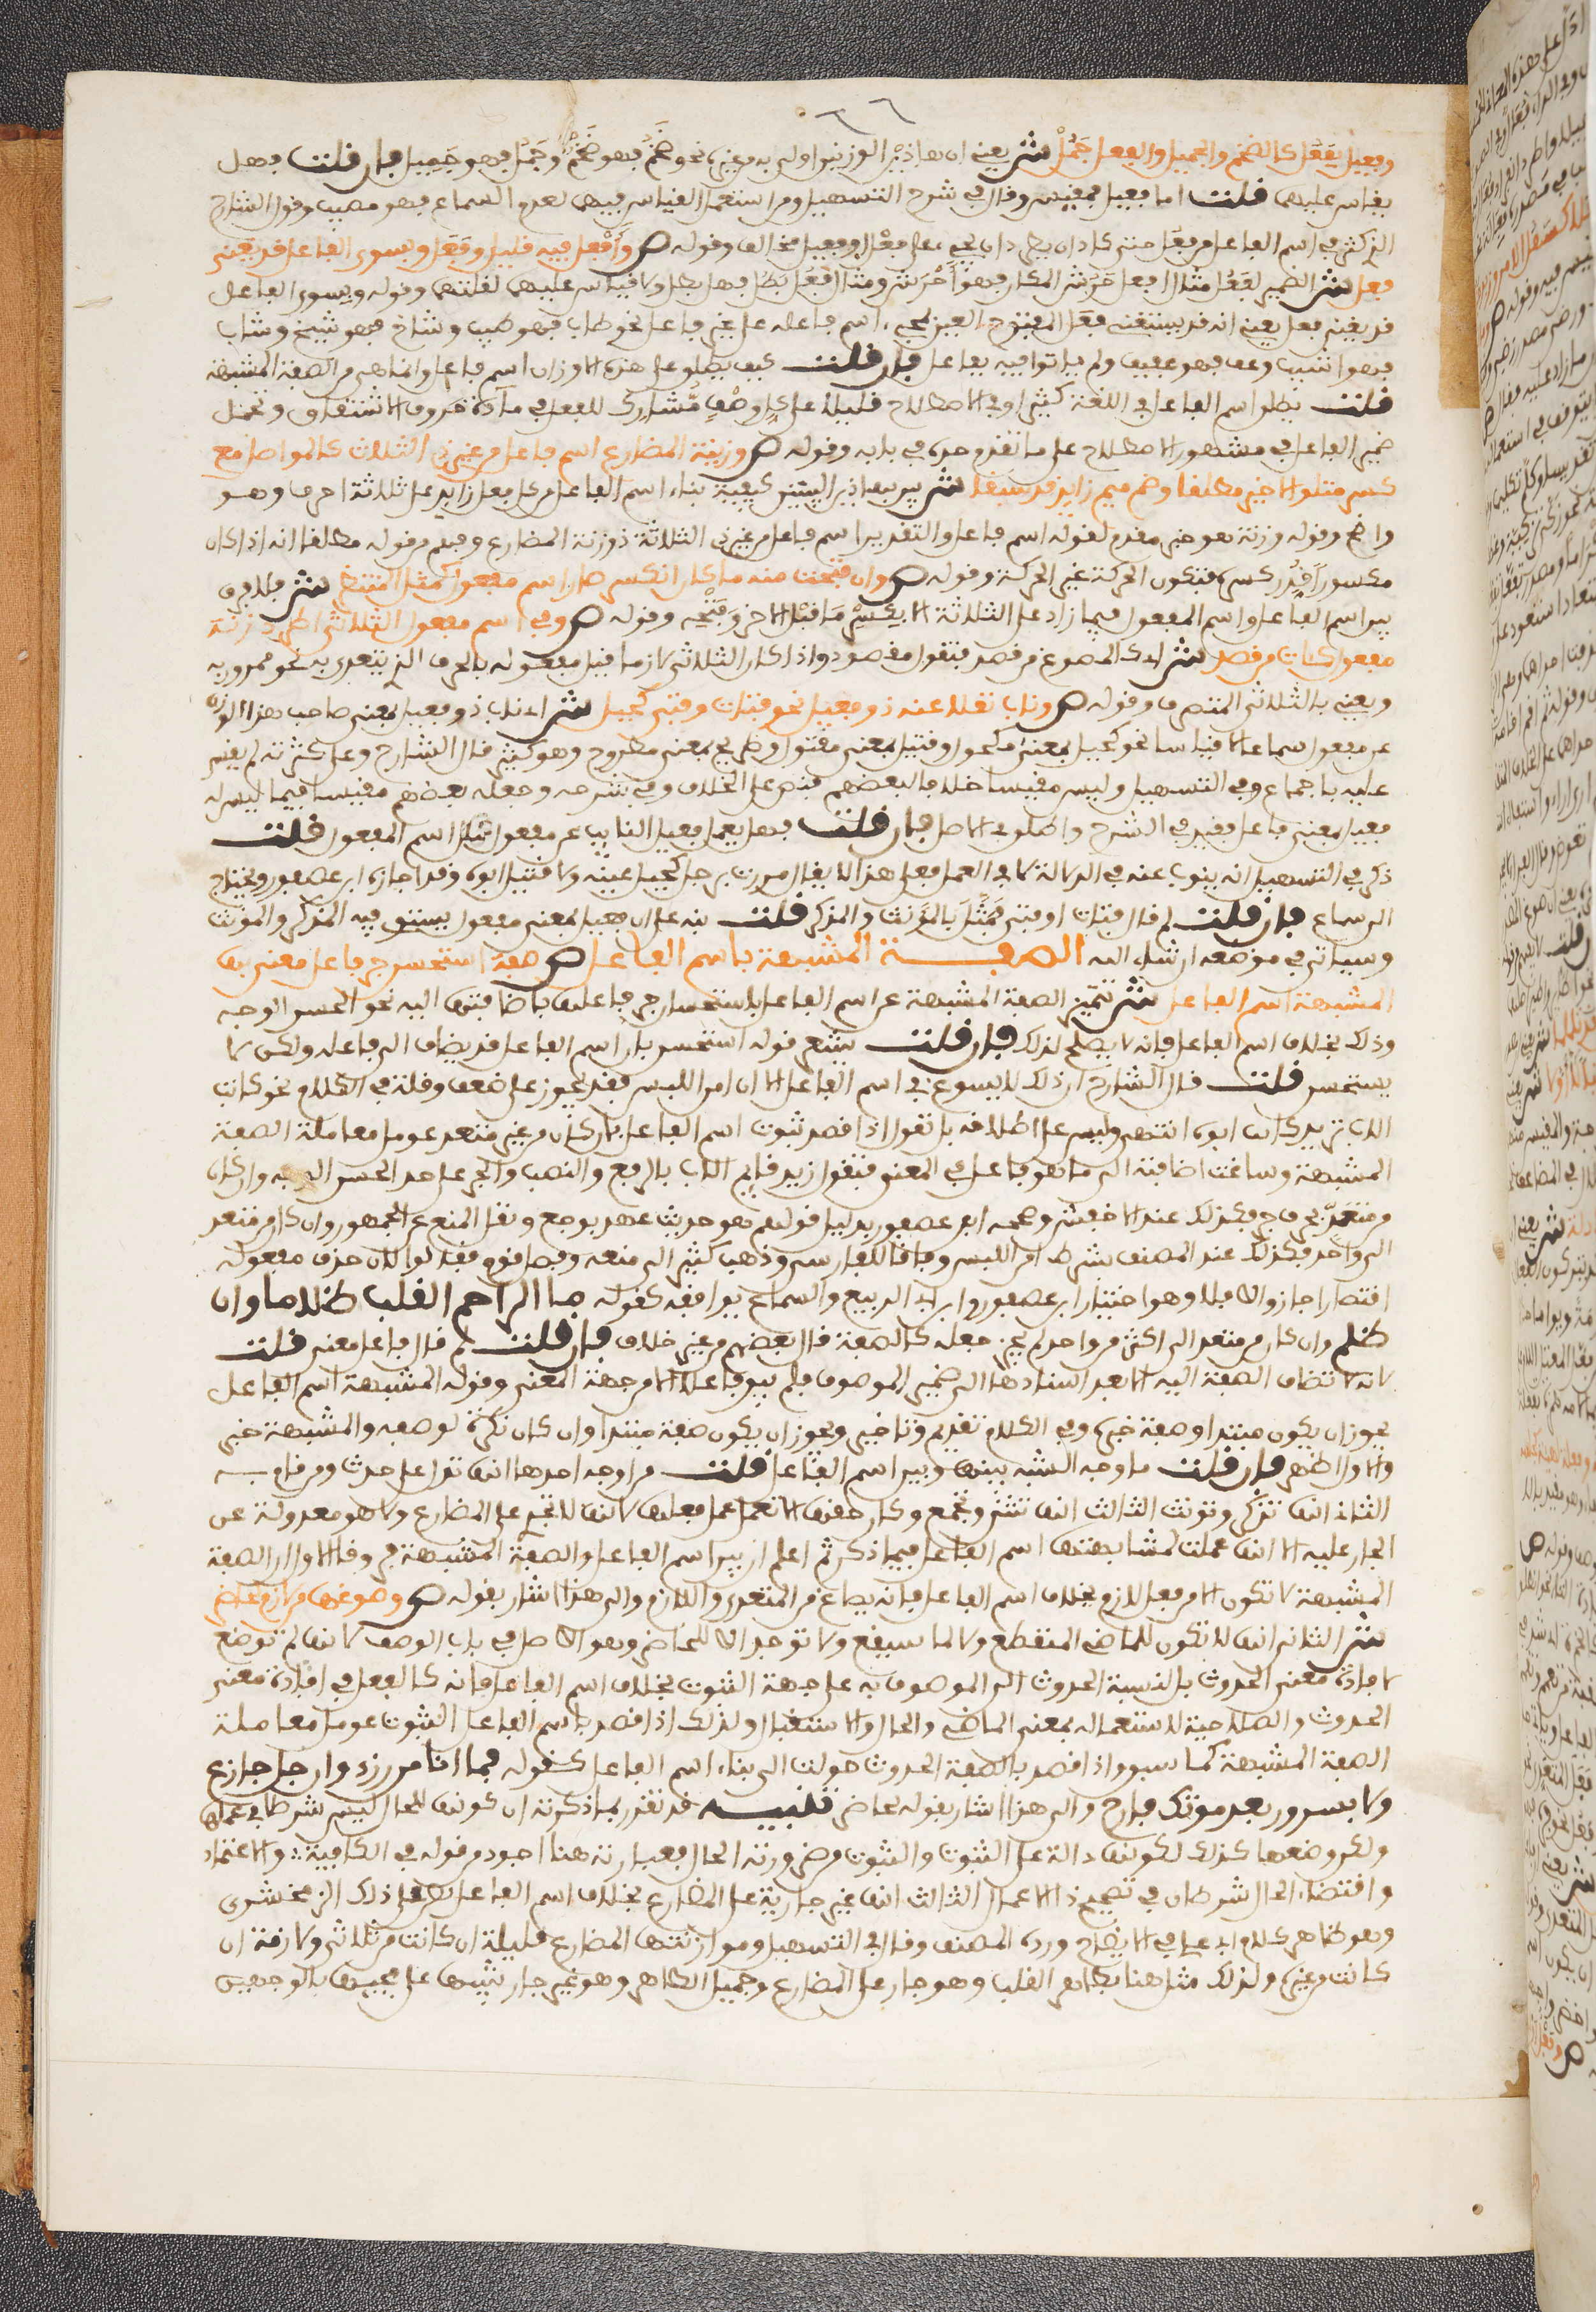 وفعيل بفعل كالضخم والجميل والفعل جمل ش يعني ان هاذين الوزنين اولى به من غيره نحو ضخم فهو ضخم وجمل فهو جميل فان قلت فهل
يقاس عليهما قلت اما فعيل فمقيس وقال في شرح التسهيل ومن استعمل القياس فيهما لعدم السماع فهو مصيب وقول الشارح
الذي كثر في اسم الفاعل من فعل حتى كاد ان يطرد ان يجيء على فعل او فعيل مخالف وقوله ص وأفعل فيه قليل وفعل وبسوى الفاعل قد يغنى
فعل ش الضمير لفعل مثال افعل حرش المكان فهو أحرش ومثال فعل بطل فهو بطل ولا قياس عليهما لقلتهما وقوله وبسوى الفاعل
قد يغنى فعل يعني انه قد يستغنى فعل المفتوح العين لمجيء اسم فاعله على غير فاعل نحو طاب فهو طيب وشاخ فهو شيخ وشاب
فهو اشيب وعف فهو عفيف ولم ياتوا فيه بفاعل فان قلت كيف يطلق على هذه الاوزان اسم فاعل وانما هي من الصفة المشبهة
قلت يطلق اسم الفاعل في اللغة كثيرا وفي الاصطلاح قليلا على كل وصف مشارك للفعل في مادة حروف الاشتقاق وتحمل
ضمير الفاعل في مشهور الاصطلاح على ما تقدم حده في بابه وقوله ص وزنة المضارع اسم فاعل من غير ذي الثلاث كالمواصل مع
كسر متلو الاخير مطلقا وضم ميم زايد قد سبقا ش بين بهاذين البيتين كيفية بناء اسم الفاعل من كل فعل زايد على ثلاثة احرف وهو
واضح وقوله وزنة هو خبر مقدم لقوله اسم فاعل والتقدير اسم فاعل من غير ذي الثلاثة ذو زنة المضارع وفهم من قوله مطلقا انه اذا كان
مكسورا قدر كسره فتكون الحركة غير الحركة وقوله ص وان فتحت منه ما كان انكسر صار اسم مفعول كمثل المنتظر ش فلا فرق
بين اسم الفاعل واسم المفعول فيما زاد على الثلاثة الا بكسر ما قبل الاخر وفتحه وقوله ص وفي اسم مفعول الثلاثي اطرد زنة
مفعول كآت من قصد ش اي كالمصوغ من قصد فتقول مقصود واذا كان الثلاثي لازما قيل مفعوله بالحرف الذي يتعدى به نحو ممرور به
ويعني بالثلاثي المتصرف وقوله ص وناب نقلا عنه ذو فعيل نحو فتاة او فتى كحيل ش اي ناب ذو فعيل بمعنى صاحب هذا الوزن
عن مفعول سماعا لا قياسا نحو كحيل بمعنى مكحول وقتيل بمعنى مقتول وطريح بمعنى مطروح وهو كثير قال الشارح وعلى كثرته لم يقس
عليه باجماع وفي التسهيل وليس مقيسا خلافا لبعضهم فنص على الخلاف وفي شرحه وجعله بعضهم مقيسا فيما ليس له
فعيل بمعنى فاعل فقيد في الشرح واطلق في الاصل فان قلت فهل يعمل فعيل النايب عن مفعول عمل اسم المفعول قلت
ذكر في التسهيل انه ينوب عنه في الدلالة لا في العمل فعلى هذا لا يقال مررت برجل كحيل عينه ولا قتيل ابوه وقد اجازه ابن عصفور ويحتاج
الى سماع فان قلت لم قال فتاة او فتى فمثل بالمؤنث والمذكر قلت نبه على ان فعيل بمعنى مفعول يستوي فيه المذكر والمؤنث
وسياتي في موضعه ان شاء الله الصفة المشبهة باسم الفاعل ص صفة استحسن جر فاعل معنى بها
المشبهة اسم الفاعل ش تتميز الصفة المشبهة عن اسم الفاعل باستحسان جر فاعلها باضافتها اليه نحو الحسن الوجه
وذلك بخلاف اسم الفاعل فانه لا يصلح لذلك فان قلت يشعر قوله استحسن بان اسم الفاعل قد يضاف الى فاعله ولكن لا
يستحسن قلت قال الشارح ان ذلك لا يسوغ في اسم الفاعل الا ان امن اللبس فقد يجوز على ضعف وقلة في الكلام نحو كاتب
الاب تريد كاتب ابوه انتهى وليس على اطلاقه بل نقول اذا قصد ثبوت اسم الفاعل فان كان من غير متعد عومل معاملة الصفة
المشبهة وساغت اضافته الى ما هو فاعل في المعنى فتقول زيد قايم الاب بالرفع والنصب والجر على حد الحسن الوجه وان كان
من متعد بحرف جر فكذلك عند الاخفش وصححه ابن عصفور بدليل قولهم هو حديث عهد بوجع ونقل المنع عن الجمهور وان كان من متعد
الى واحد فكذلك عند المصنف بشرط امن اللبس وفاقا للفارسي وذهب كثير الى منعه وفصل قوم فقالوا ان حذف مفعوله
اقتصارا جاز والا فلا وهو اختيار ابن عصفور وابن ابي الربيع والسماع يوافقه كقوله ما الراحم القلب ظلاما وان
ظلم وان كان من متعد الى اكثر من واحد لم يجز جعله كالصفة قال بعضهم من غير خلاف فان قلت لم قال فاعل معنى قلت
لانه لا تضاف الصفة اليه الا بعد اسنادها الى ضمير الموصوف فلم يبق فاعلا الا من جهة المعنى وقوله المشبهة اسم الفاعل
يجوز ان يكون مبتدا وصفة خبره وفي الكلام تقديم وتاخير ويجوز ان يكون صفة مبتدا وان كان نكرة لوصفه والمشبهة خبر
والاول اظهر فان قلت ما وجه الشبه بينها وبين اسم الفاعل قلت من اوجه احدها انها تدل على حدث ومن قام به
الثاني انها تذكر وتؤنث الثالث انها تثنى وتجمع وكان حقها الا تعمل عمل فعلها لانها لا تجري على المضارع ولا هو معدولة عن
الجار عليه الا انها عملت لمشابهتها اسم الفاعل فيما ذكر ثم اعلم ان بين اسم الفاعل والصفة المشبهة فروقا الاول ان الصفة
المشبهة لا تكون الا من فعل لازم بخلاف اسم الفاعل فانه يصاغ من المتعدي واللازم والى هذا اشار بقوله ص وصوغها من لازم لحاضر
ش الثاني انها لا تكون للماضي المنقطع ولا لما سيقع ولا توجد الا للحاضر وهو الاصل في باب الوصف لانها لم توضع
لافادة معنى الحدوث بل لنسبة الحدوث الى الموصوف به على جهة الثبوت بخلاف اسم الفاعل فانه كالفعل في افادة معنى
الحدوث والصلاحية لاستعماله بمعنى الماضي والحال والاستقبال ولذلك اذا قصد باسم الفاعل الثبوت عومل معاملة
الصفة المشبهة كما سبق واذا قصد بالصفة الحدوث حولت الى بناء اسم الفاعل كقوله فما انا من رزء وان جل جازع
ولا بسرور بعد موتك فارح والى هذا اشار بقوله لحاضر تنبيه قد تقرر بما ذكرته ان كونها للحال ليس شرطا في عملها
ولكن وضعها كذلك لكونها دالة على الثبوت والثبوت من ضرورته الحال فعبارته هنا اجود من قوله في الكافية والاعتماد
واقتضاء الحال شرطان في تصحيح ذا الاعمال الثالث انها غير جارية على المضارع بخلاف اسم الفاعل ذلك الزمخشري
وهو ظاهر كلام ابي علي في الايضاح ورده المصنف وقال في التسهيل وموازنتها المضارع قليلة ان كانت من ثلاثي ولازمة ان
كانت من غيره ولذلك مثل هنا بطاهر القلب وهو جار على المضارع وجميل الظاهر وهو غير جار تنبيها على مجيئها بالوجهين